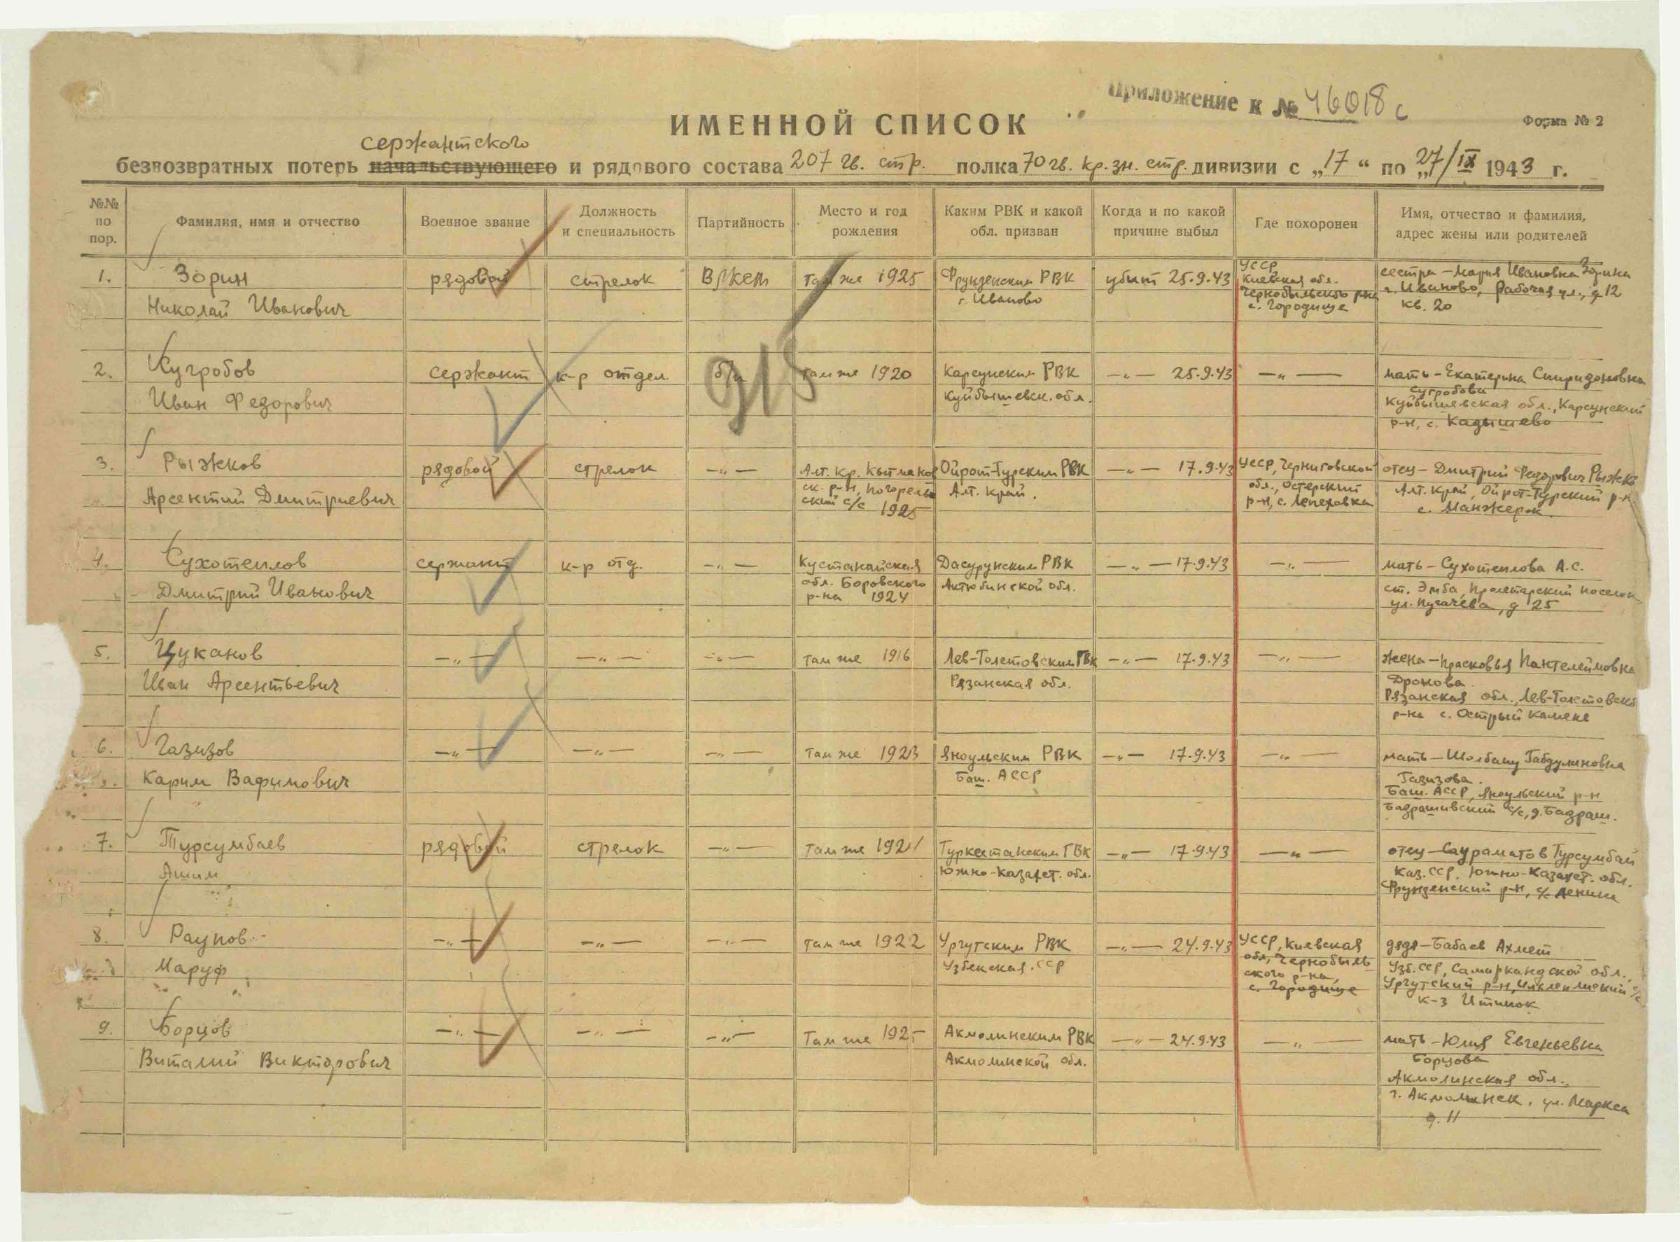 Приложение к № 46018с
ИМЕННОЙ СПИСОК
Форма № 2
сержантского
безвозвратных потерь начальствующего и рядового состава 207 гв. стр. полка 70 гв. кр. зн. стр. дивизии с „17“ по „27/IX 1943 г.
№№ по пор.
Фамилия, имя и отчество
Военное звание
Должность и специальность
Партийность
Место и год рождения
Каким РВК и какой обл. призван
Когда и по какой причине выбыл
Где похоронен
Имя, отчество и фамилия, адрес жены или родителей
315
1. Зорин рядовой стрелок ВЛКСМ там же 1925 Фрунзенским РВК убит 25.9.43 УССР сестра – Мария Ивановна Зорина
Николай Иванович г. Иваново Киевская обл. г. Иваново, Рабочая ул., д 12
Чернобыльского р-на кв. 20
с. Городище
2. Сугробов сержант к-р отдел б/п там же 1920 Карсунским РВК —„— 25.9.43 —„— мать – Екатерина Спиридоновна
Иван Федорович Куйбышевск. обл. Сугробова
Куйбышевская обл., Карсунский
р-н, с. Кадышево
3. Рыжков рядовой стрелок —„— Алт. кр. Кытманов Ойрот-Турским РВК —„— 17.9.43 УССР, Черниговской отец – Дмитрий Федорович Рыжков
Арсентий Дмитриевич ск. р-н, Погорель Алт. край. обл., Остерский Алт. край, Ойрот-Турский р-н
ский с/с 1925 р-н, с. с. Манжерок
4. Сухотеплов сержант к-р отд. —„— Кустанайская РВК —„— 17.9.43 —„— мать – Сухотеплова А.С.
Дмитрий Иванович обл. Боровского Актюбинской обл. ст. Эмба, Пролетарский поселок
р-на 1924 ул. Пугачёва, д 25
5. Цуканов —„— —„— —„— там же 1916 Лев-Толстовским РВК —„— 17.9.43 —„— жена – Прасковья Пантелеймовна
Иван Арсентьевич Рязанская обл. Дронова
Рязанская обл., Лев-Толстовск
р-на с. Острый камень
6. Газизов —„— —„— —„— там же 1923 Янаульским РВК —„— 17.9.43 —„— мать – Габдулиновна
Карим Вафимович Баш. АССР Газизова.
Баш. АССР, Янаульский р-н
с/с, д.
7. Турсумбаев рядовой стрелок —„— там же 1921 Туркестанским РВК —„— 17.9.43 —„— отец – Турсумбай
Ашим Южно-Казахст. обл. Каз. ССР, Южно-Казахст. обл.
Фрунзенский р-н, с/с Ленина
8. Раупов —„— —„— —„— там же 1922 Ургутским РВК —„— 24.9.43 УССР, Киевская дядя – Бабаев Ахмет
Маруф Узбекская ССР обл., Чернобыль Узб. ССР, Самаркандской обл.,
ского р-на, Ургутский р-н,
с. Городище к-з
9. Борцов —„— —„— —„— там же 192 Акмолинским РВК —„— 24.9.43 —„— мать – Юлия Евгеньевна
Виталий Викторович Акмолинской обл. Борцова
Акмолинская обл.,
г. Акмолинск, ул. Маркса
д. 11